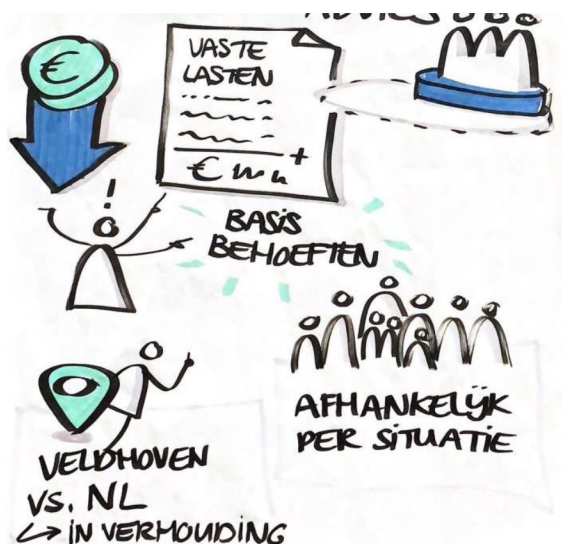 ADVIES
€
VASTE
LASTEN
€
+
!
BASIS
BEHOEFTEN
AFHANKELIJK
PER SITUATIE
VELDHOVEN
VS. NL
↳ IN VERHOUDING